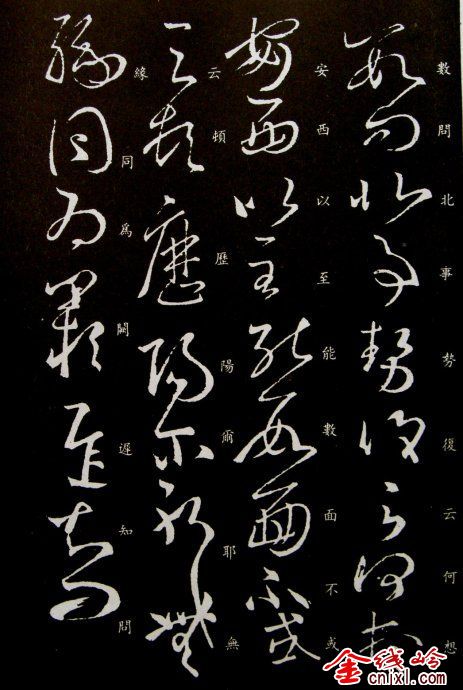 數問北事勢復云何想
安西以至能數面不或
云頓歷陽爾耶無
緣同爲闕遲知問
金线岭
cnlxl.com